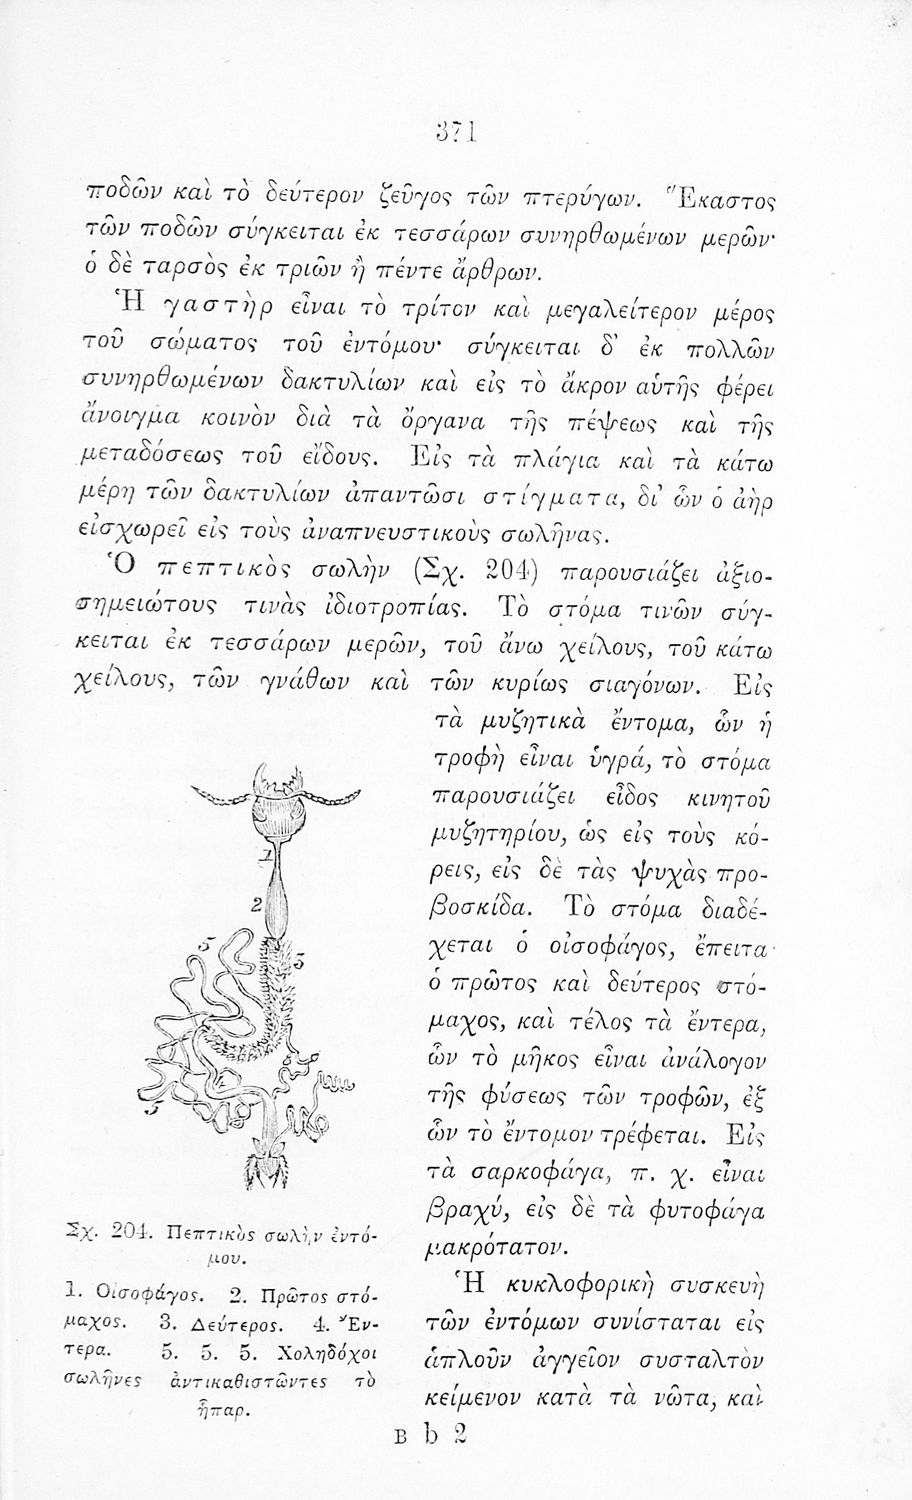 371
ποδῶν καὶ τὸ δεύτερον ζεῦγος τῶν πτερύγων. Ἕκαστος
τῶν ποδῶν σύγκειται ἐκ τεσσάρων συνηρθωμένων μερῶν·
ὁ δὲ ταρσὸς ἐκ τριῶν ἢ πέντε ἄρθρων.
Ἡ γαστὴρ εἶναι τὸ τρίτον καὶ μεγαλείτερον μέρος
τοῦ σώματος τοῦ ἐντόμου· σύγκειται δ᾽ ἐκ πολλῶν
συνηρθωμένων δακτυλίων καὶ εἰς τὸ ἄκρον αὑτῆς φέρει
ἄνοιγμα κοινὸν διὰ τὰ ὄργανα τῆς πέψεως καὶ τῆς
μεταδόσεως τοῦ εἴδους. Εἰς τὰ πλάγια καὶ τὰ κάτω
μέρη τῶν δακτυλίων ἀπαντῶσι στίγματα, δι᾽ ὧν ὁ ἀὴρ
εἰσχωρεῖ εἰς τοὺς ἀναπνευστικοὺς σωλῆνας.
Ὁ πεπτικὸς σωλὴν (Σχ. 204) παρουσιάζει ἀξιο-
σημειώτους τινὰς ἰδιοτροπίας. Τὸ στόμα τινῶν σύγ-
κειται ἐκ τεσσάρων μερῶν, τοῦ ἄνω χείλους, τοῦ κάτω
χείλους, τῶν γνάθων καὶ τῶν κυρίως σιαγόνων. Εἰς
τὰ μυζητικὰ ἔντομα, ὧν ἡ
τροφὴ εἶναι ὑγρά, τὸ στόμα
παρουσιάζει εἶδος κινητοῦ
μυζητηρίου, ὡς εἰς τοὺς κό-
ρεις, εἰς δὲ τὰς ψυχὰς προ-
βοσκίδα. Τὸ στόμα διαδέ-
χεται ὁ οἰσοφάγος, ἔπειτα
ὁ πρῶτος καὶ δεύτερος στό-
μαχος, καὶ τέλος τὰ ἔντερα,
ὧν τὸ μῆκος εἶναι ἀνάλογον
τῆς φύσεως τῶν τροφῶν, ἐξ
ὧν τὸ ἔντομον τρέφεται. Εἰς
τὰ σαρκοφάγα, π. χ. εἶναι
βραχύ, εἰς δὲ τὰ φυτοφάγα
μακρότατον.
Ἡ κυκλοφορικὴ συσκευὴ
τῶν ἐντόμων συνίσταται εἰς
ἁπλοῦν ἀγγεῖον συσταλτὸν
κείμενον κατὰ τὰ νῶτα, καὶ
1
2
3
5
6
4
5
Σχ. 204. Πεπτικὸς σωλὴν ἐντό-
μου.
1. Οἰσοφάγος. 2. Πρῶτος στό-
μαχος. 3. Δεύτερος. 4. Ἔν-
τερα. 5. 5. 5. Χοληδόχοι
σωλῆνες ἀντικαθιστῶντες τὸ
ἧπαρ.
B b 2